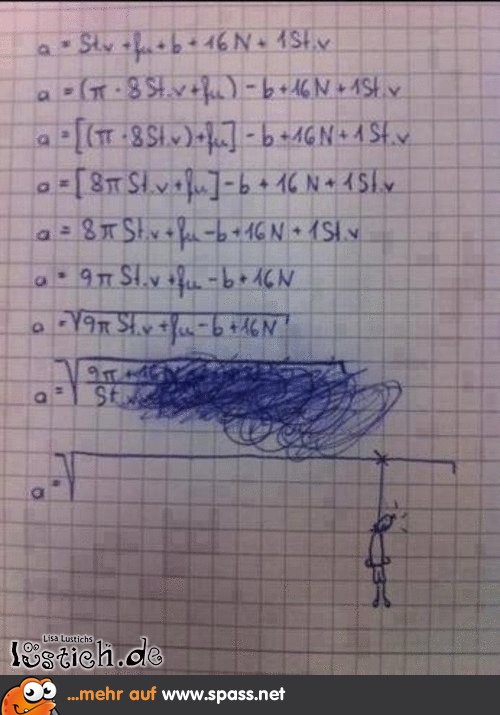 a = St.v + fu + b + 16N + 1St.v
a = (π · 8St.v + fu) - b + 16N + 1St.v
a = [(π · 8St.v) + fu] - b + 16N + 1St.v
a = [8π St.v + fu] - b + 16N + 1St.v
a = 8π St.v + fu - b + 16N + 1St.v
a = 9π St.v + fu - b + 16N
a = √9π St.v + fu - b + 16N
a = √9π + 16N
St.
a = √
Lisa Lustichs
lustich.de
...mehr auf www.spass.net